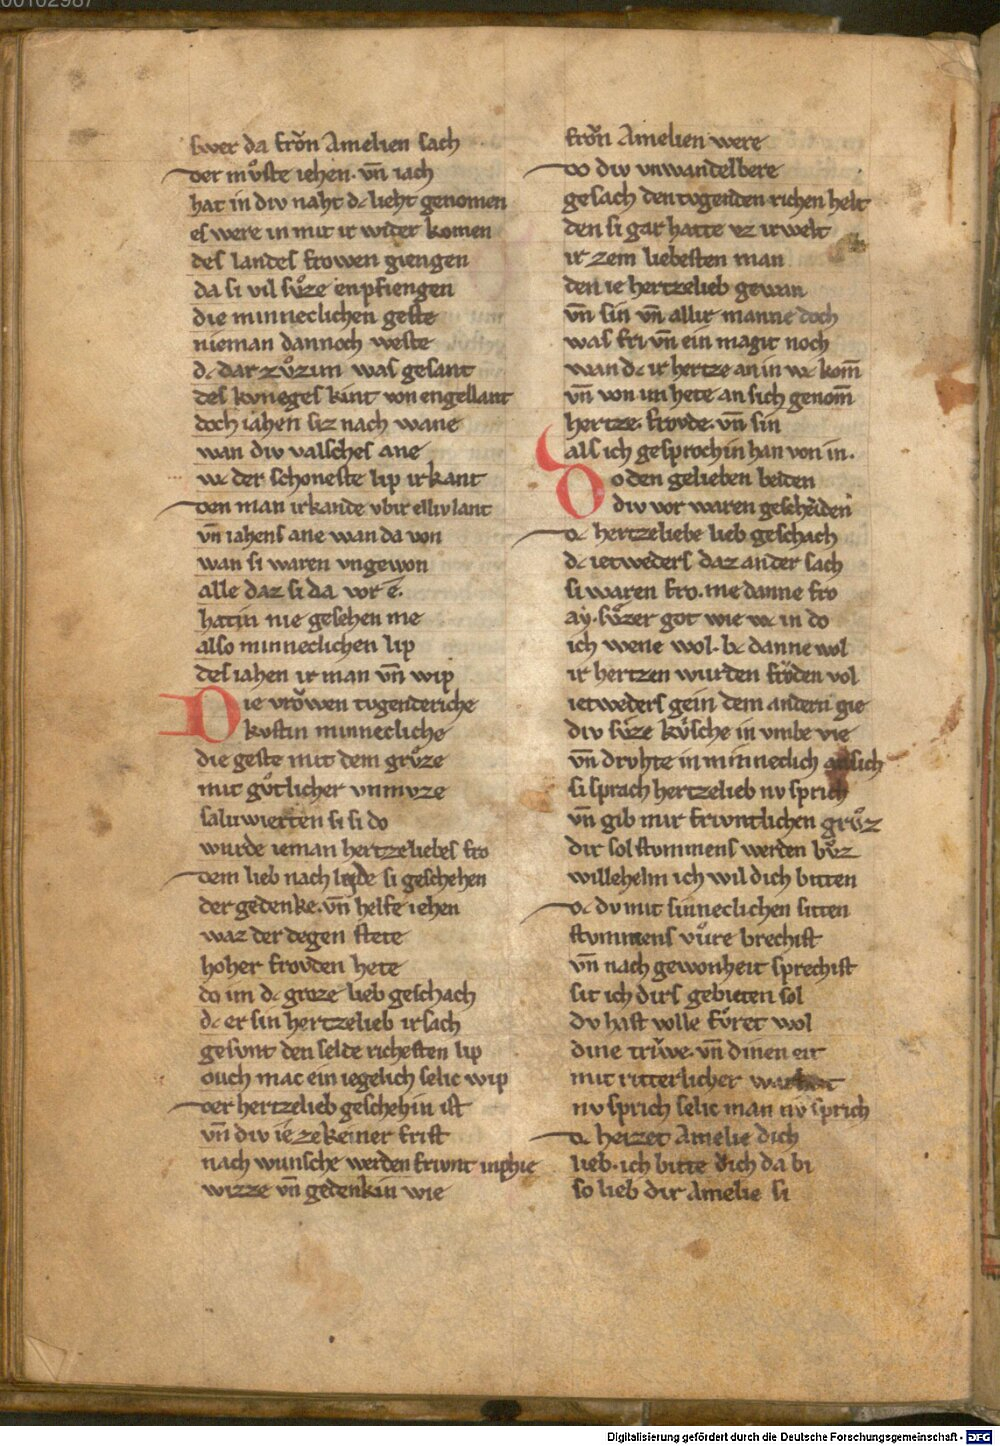 00102987
swer da froͮn Amelien sach
der muͦste iehen. vn̄ iach
hat in div naht dc lieht genomen
es were in mit ir wider komen
des landes frowen giengen
da si vil suͤze enpfiengen
die minneclichen geste
nieman dannoch weste
dc dar zuͦzim was gesant
des kvneges kint von engellant
doch iahen siz nach wane
wan div valsches ane
wc der schoneste lip irkant
den man irkande vbir elliv lant
vn̄ iahens ane wan da von
wan si waren vngewon
alle daz si da vor e.
hatin nie gesehen me
also minneclichen lip
des iahen ir man vn̄ wip
Die vroͮwen tvgenderiche
kvstin minnecliche
die geste mit dem gruͤze
mit guͤtlicher vnmvze
saluwierten si si do
wurde ieman hertzeliebes fro
dem lieb nach leide si geschehen
der gedenke. vn̄ helfe iehen
waz der degen stete
hoher frovden hete
do im dc groze lieb geschach
dc er sin hertzelieb irsach
gesvnt den selde richesten lip
ouch mac ein iegelich selic wip
der hertzelieb geschehin ist
vn̄ div ie ze keiner frist
nach wunsche werden frivnt inphie
wizze vn̄ gedenkin wie
froͮn Amelien were
do div vnwandelbere
gesach den tvgenden richen helt
den si gar hatte vz irwelt
ir zem liebesten man
den ie hertzelieb gewan
vn̄ sin vn̄ allir manne doch
was fri vn̄ ein magit noch
wan dc ir hertze an in wc kom̄
vn̄ von im hete an sich genom̄
hertze. frovde. vn̄ sin
als ich gesprochin han von in.
Do den gelieben beiden
div vor waren gescheiden
dc hertzeliebe lieb geschach
dc ietweders daz ander sach
si waren fro. me danne fro
ay. suͤzer got wie wc in do
ich wene wol. bc danne wol
ir hertzen wurden froͤden vol
ietweders gein dem andern gie
div suͤze kuͤsche in vmbe vie
vn̄ drvhte in minneclich an sich
si sprach hertzelieb nv sprich
vn̄ gib mir frivntlichen gruͦz
dir sol stummens werden buͦz
willehelm ich wil dich bitten
dc dv mit sinneclichen sitten
stvmmens vuͤre brechist
vn̄ nach gewonheit sprechist
sit ich dirs gebieten sol
dv hast volle fuͤret wol
dine triwe. vn̄ dinen eit
mit ritterlicher warheit
nv sprich selic man nv sprich
dc heizet Amelie dich
lieb. ich bitte dich da bi
so lieb dir Amelie si
Digitalisierung gefördert durch die Deutsche Forschungsgemeinschaft - DFG